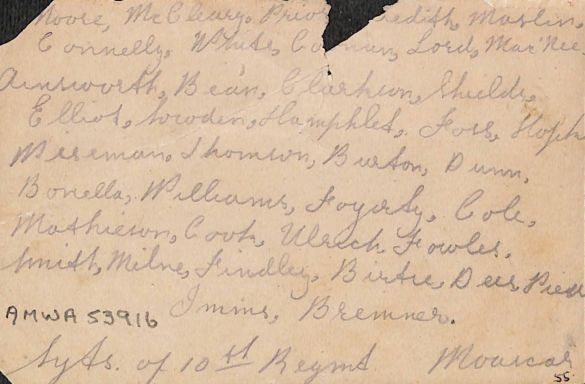 Moore, McCleary, Prior, Maslin,
Connelly, White, Lord, MacNee
Ainsworth, Bean, Clarkson, Shields,
Elliot, Lowden, Hamphlet, Foss,
Wiseman, Thomson, Burton, Dunn,
Bonella, Williams, Fogerty, Cole,
Mathieson, Cook, Ulrich, Fowles,
Smith, Milne, Findley, Birtie,
Imins, Bremner.
AMWA 53916
Sgts. of 10st Regmt Moascar
55